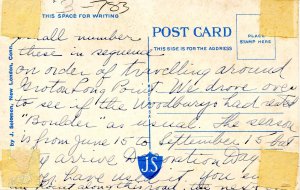 THIS SPACE FOR WRITING
POST CARD
THIS SIDE IS FOR THE ADDRESS
PLACE
STAMP HERE
small number
these in sequence
on order of travelling around
Groton Long Point. We drove over
to see if the Woodburys had
"Boulder" as usual. The season
is from June 15 to September 15 but
arrive Decoration Day
have used it. You
along this road. the next
by J. Solomon, New London, Conn.
JS